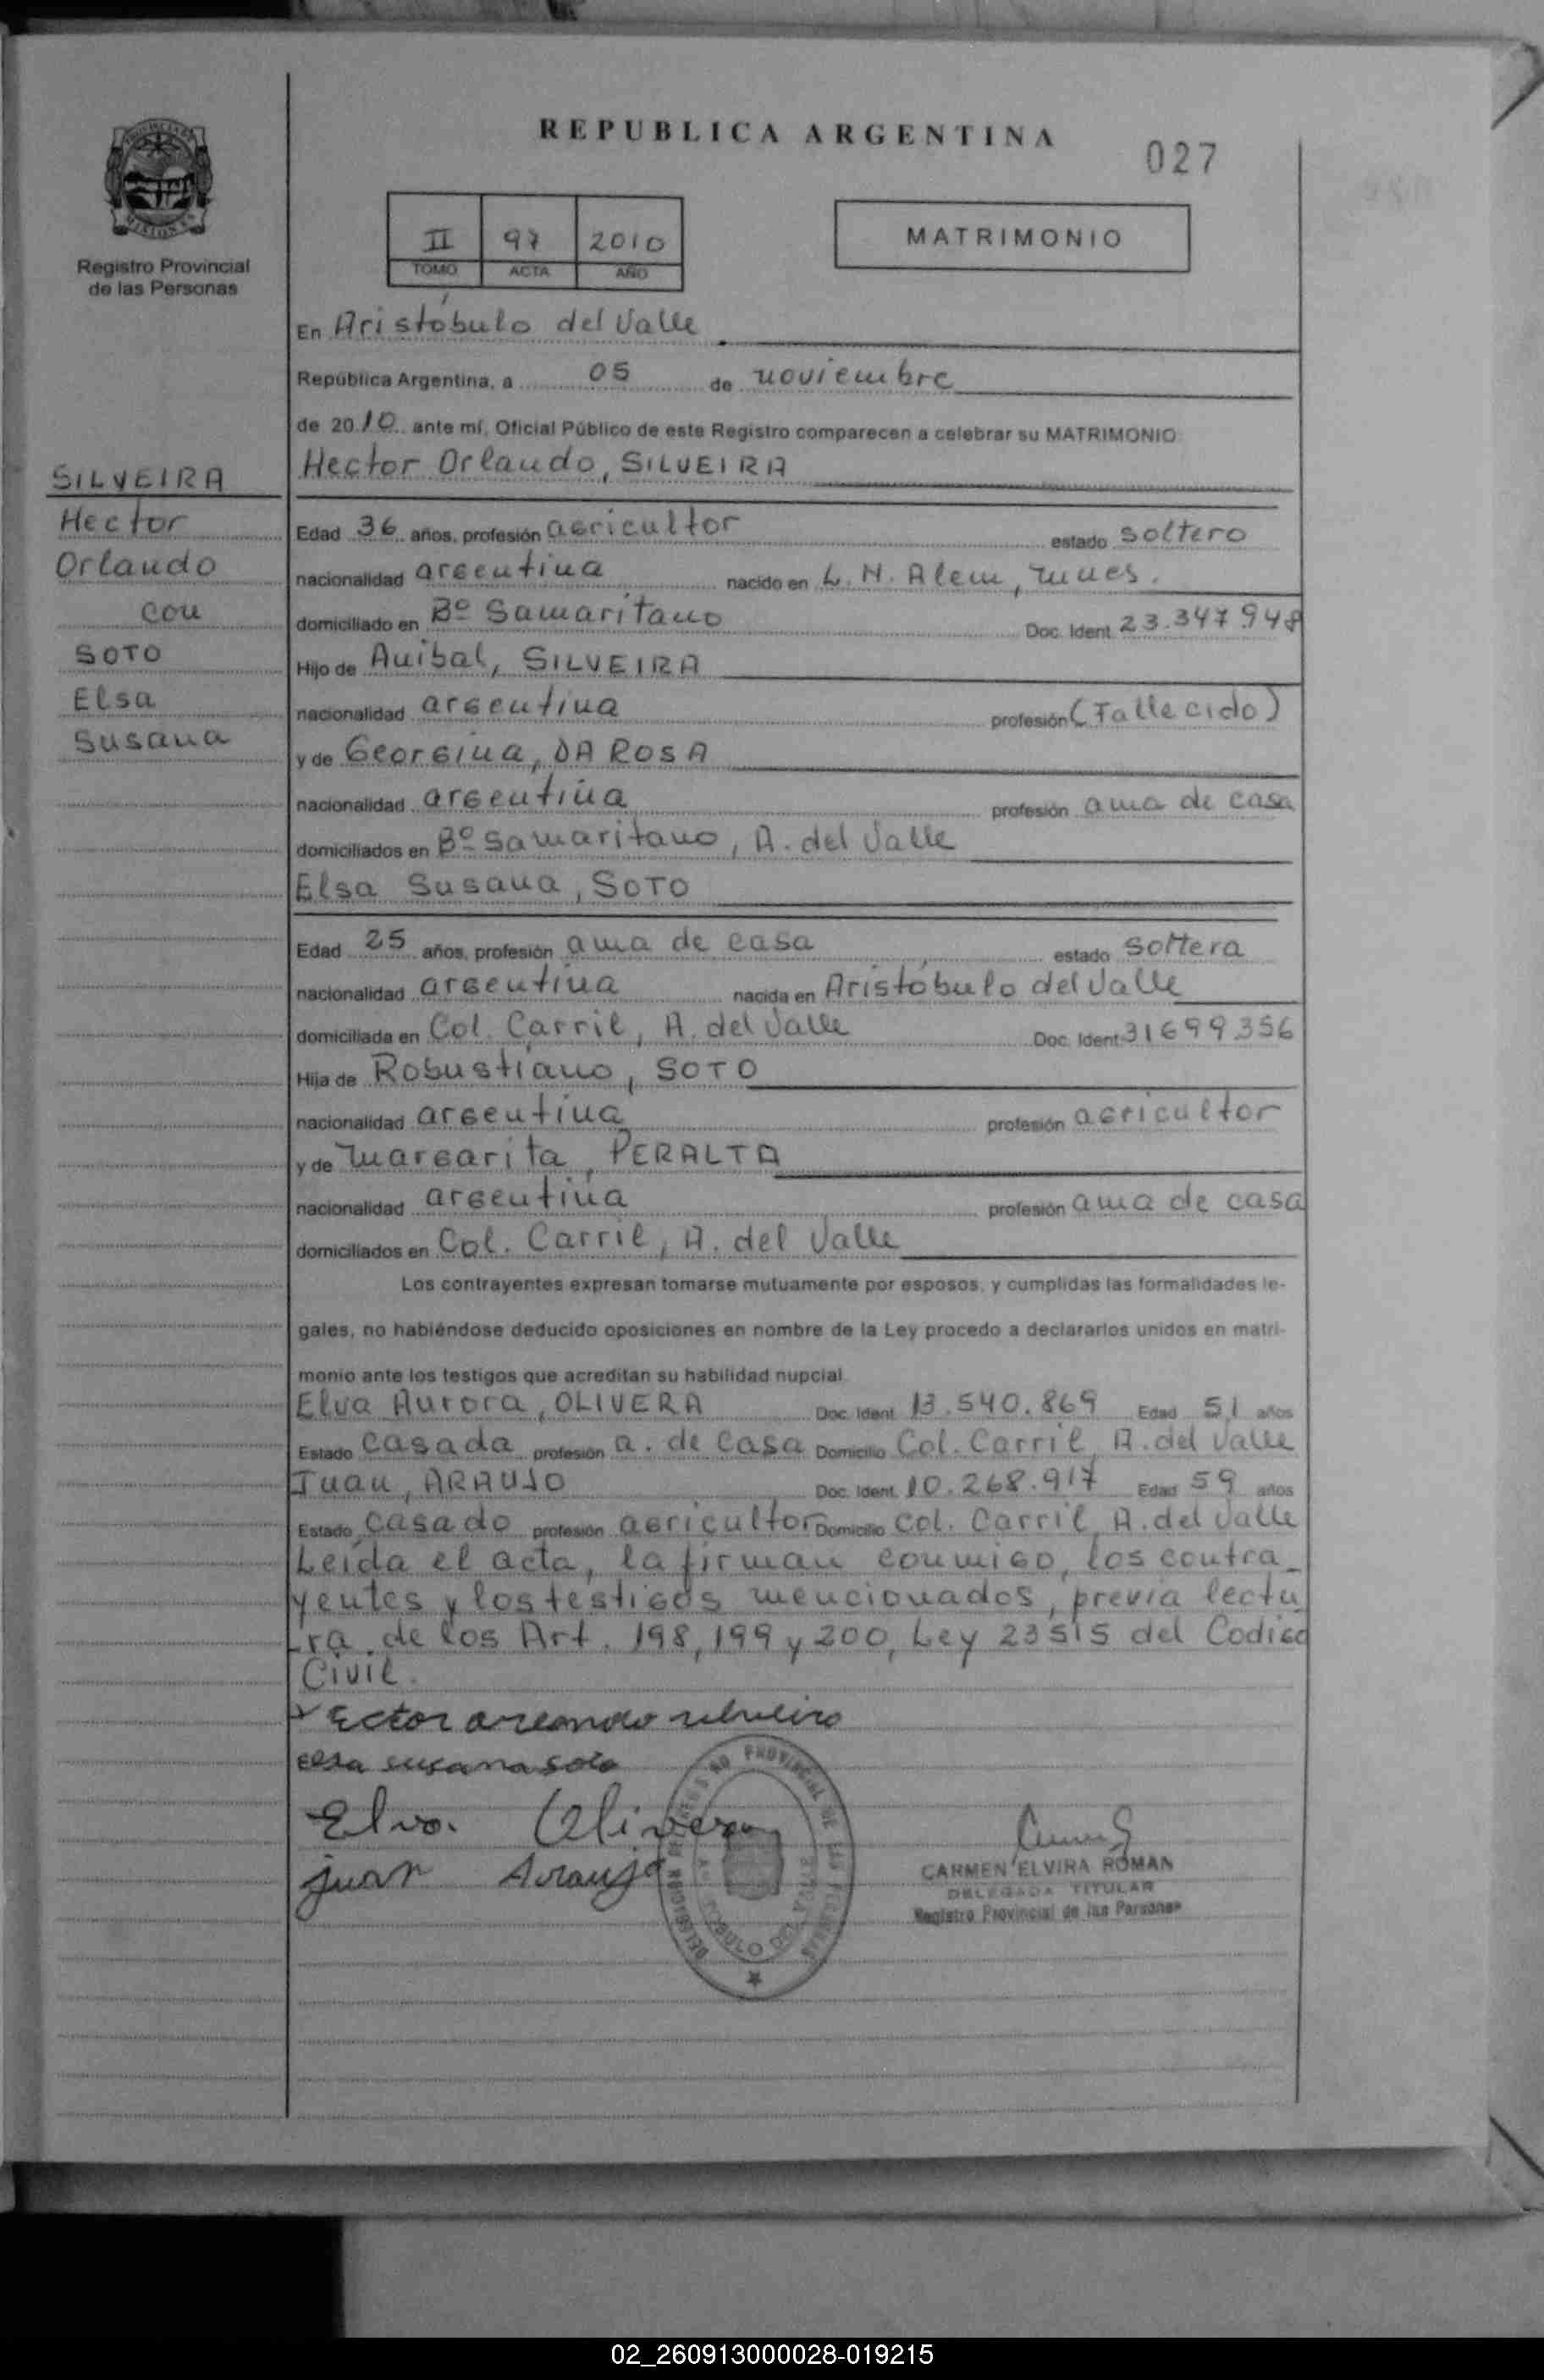 REPUBLICA ARGENTINA
027
PROVINCIA DE
MISIONES
Registro Provincial
de las Personas
II 97 2010
TOMO ACTA AÑO
MATRIMONIO
En Aristóbulo del Valle
República Argentina, a 05 de noviembre
de 2010 ante mí, Oficial Público de este Registro comparecen a celebrar su MATRIMONIO
Hector Orlando, SILVEIRA
SILVEIRA
Hector
Orlando
con
SOTO
Elsa
Susana
Edad 36 años, profesión agricultor estado soltero
nacionalidad argentina nacido en L. N. Alem, Mnes.
domiciliado en Bº Samaritano Doc. Ident. 23.347948
Hijo de Anibal, SILVEIRA
nacionalidad argentina profesión (Fallecido)
y de Georgina, DA ROSA
nacionalidad argentina profesión ama de casa
domiciliados en Bº Samaritano, A. del Valle
Elsa Susana, SOTO
Edad 25 años, profesión ama de casa estado soltera
nacionalidad argentina nacida en Aristóbulo del Valle
domiciliada en Col. Carril, A. del Valle Doc. Ident. 31699356
Hija de Robustiano, SOTO
nacionalidad argentina profesión agricultor
y de Margarita, PERALTA
nacionalidad argentina profesión ama de casa
domiciliados en Col. Carril, A. del Valle
Los contrayentes expresan tomarse mutuamente por esposos, y cumplidas las formalidades le-
gales, no habiéndose deducido oposiciones en nombre de la Ley procedo a declararlos unidos en matri-
monio ante los testigos que acreditan su habilidad nupcial
Elva Aurora, OLIVERA Doc. Ident. 13.540.869 Edad 51 años
Estado casada profesión a. de casa Domicilio Col. Carril, A. del Valle
Juan, ARAUJO Doc. Ident. 10.268.917 Edad 59 años
Estado casado profesión agricultor Domicilio Col. Carril, A. del Valle
Leída el acta, la firman conmigo, los contra-
yentes y los testigos mencionados, previa lectu
-ra de los Art. 198, 199 y 200, Ley 23515 del Codigo
Civil.
Ector orlando silveira
elsa susana soto
Elva. Olivera
juan Araujo
CARMEN ELVIRA ROMAN
DELEGADA TITULAR
Registro Provincial de las Personas
02_260913000028-019215